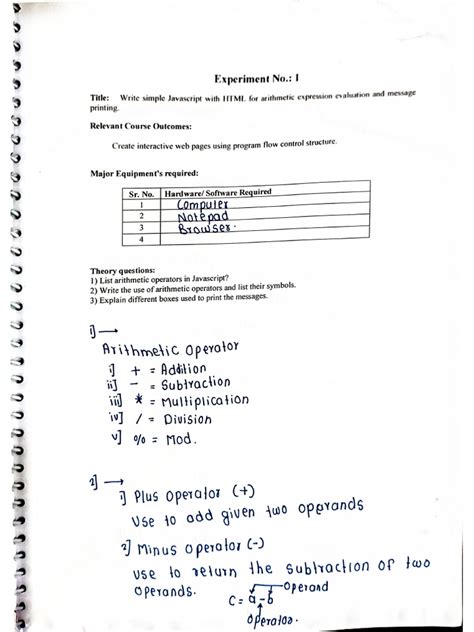 Experiment No.: 1
Title: Write simple Javascript with HTML for arithmetic expression evaluation and message
printing.
Relevant Course Outcomes:
Create interactive web pages using program flow control structure.
Major Equipment's required:
Sr. No. Hardware/ Software Required
1 Computer
2 Notepad
3 Browser.
4
Theory questions:
1) List arithmetic operators in Javascript?
2) Write the use of arithmetic operators and list their symbols.
3) Explain different boxes used to print the messages.
1] →
Arithmetic Operator
i] + = Addition
ii] - = Subtraction
iii] * = Multiplication
iv] / = Division
v] % = Mod.
2] →
1] Plus operator (+)
Use to add given two operands
2] Minus operator (-)
use to return the subtraction of two
operands.
Operand
C = a - b
Operator.